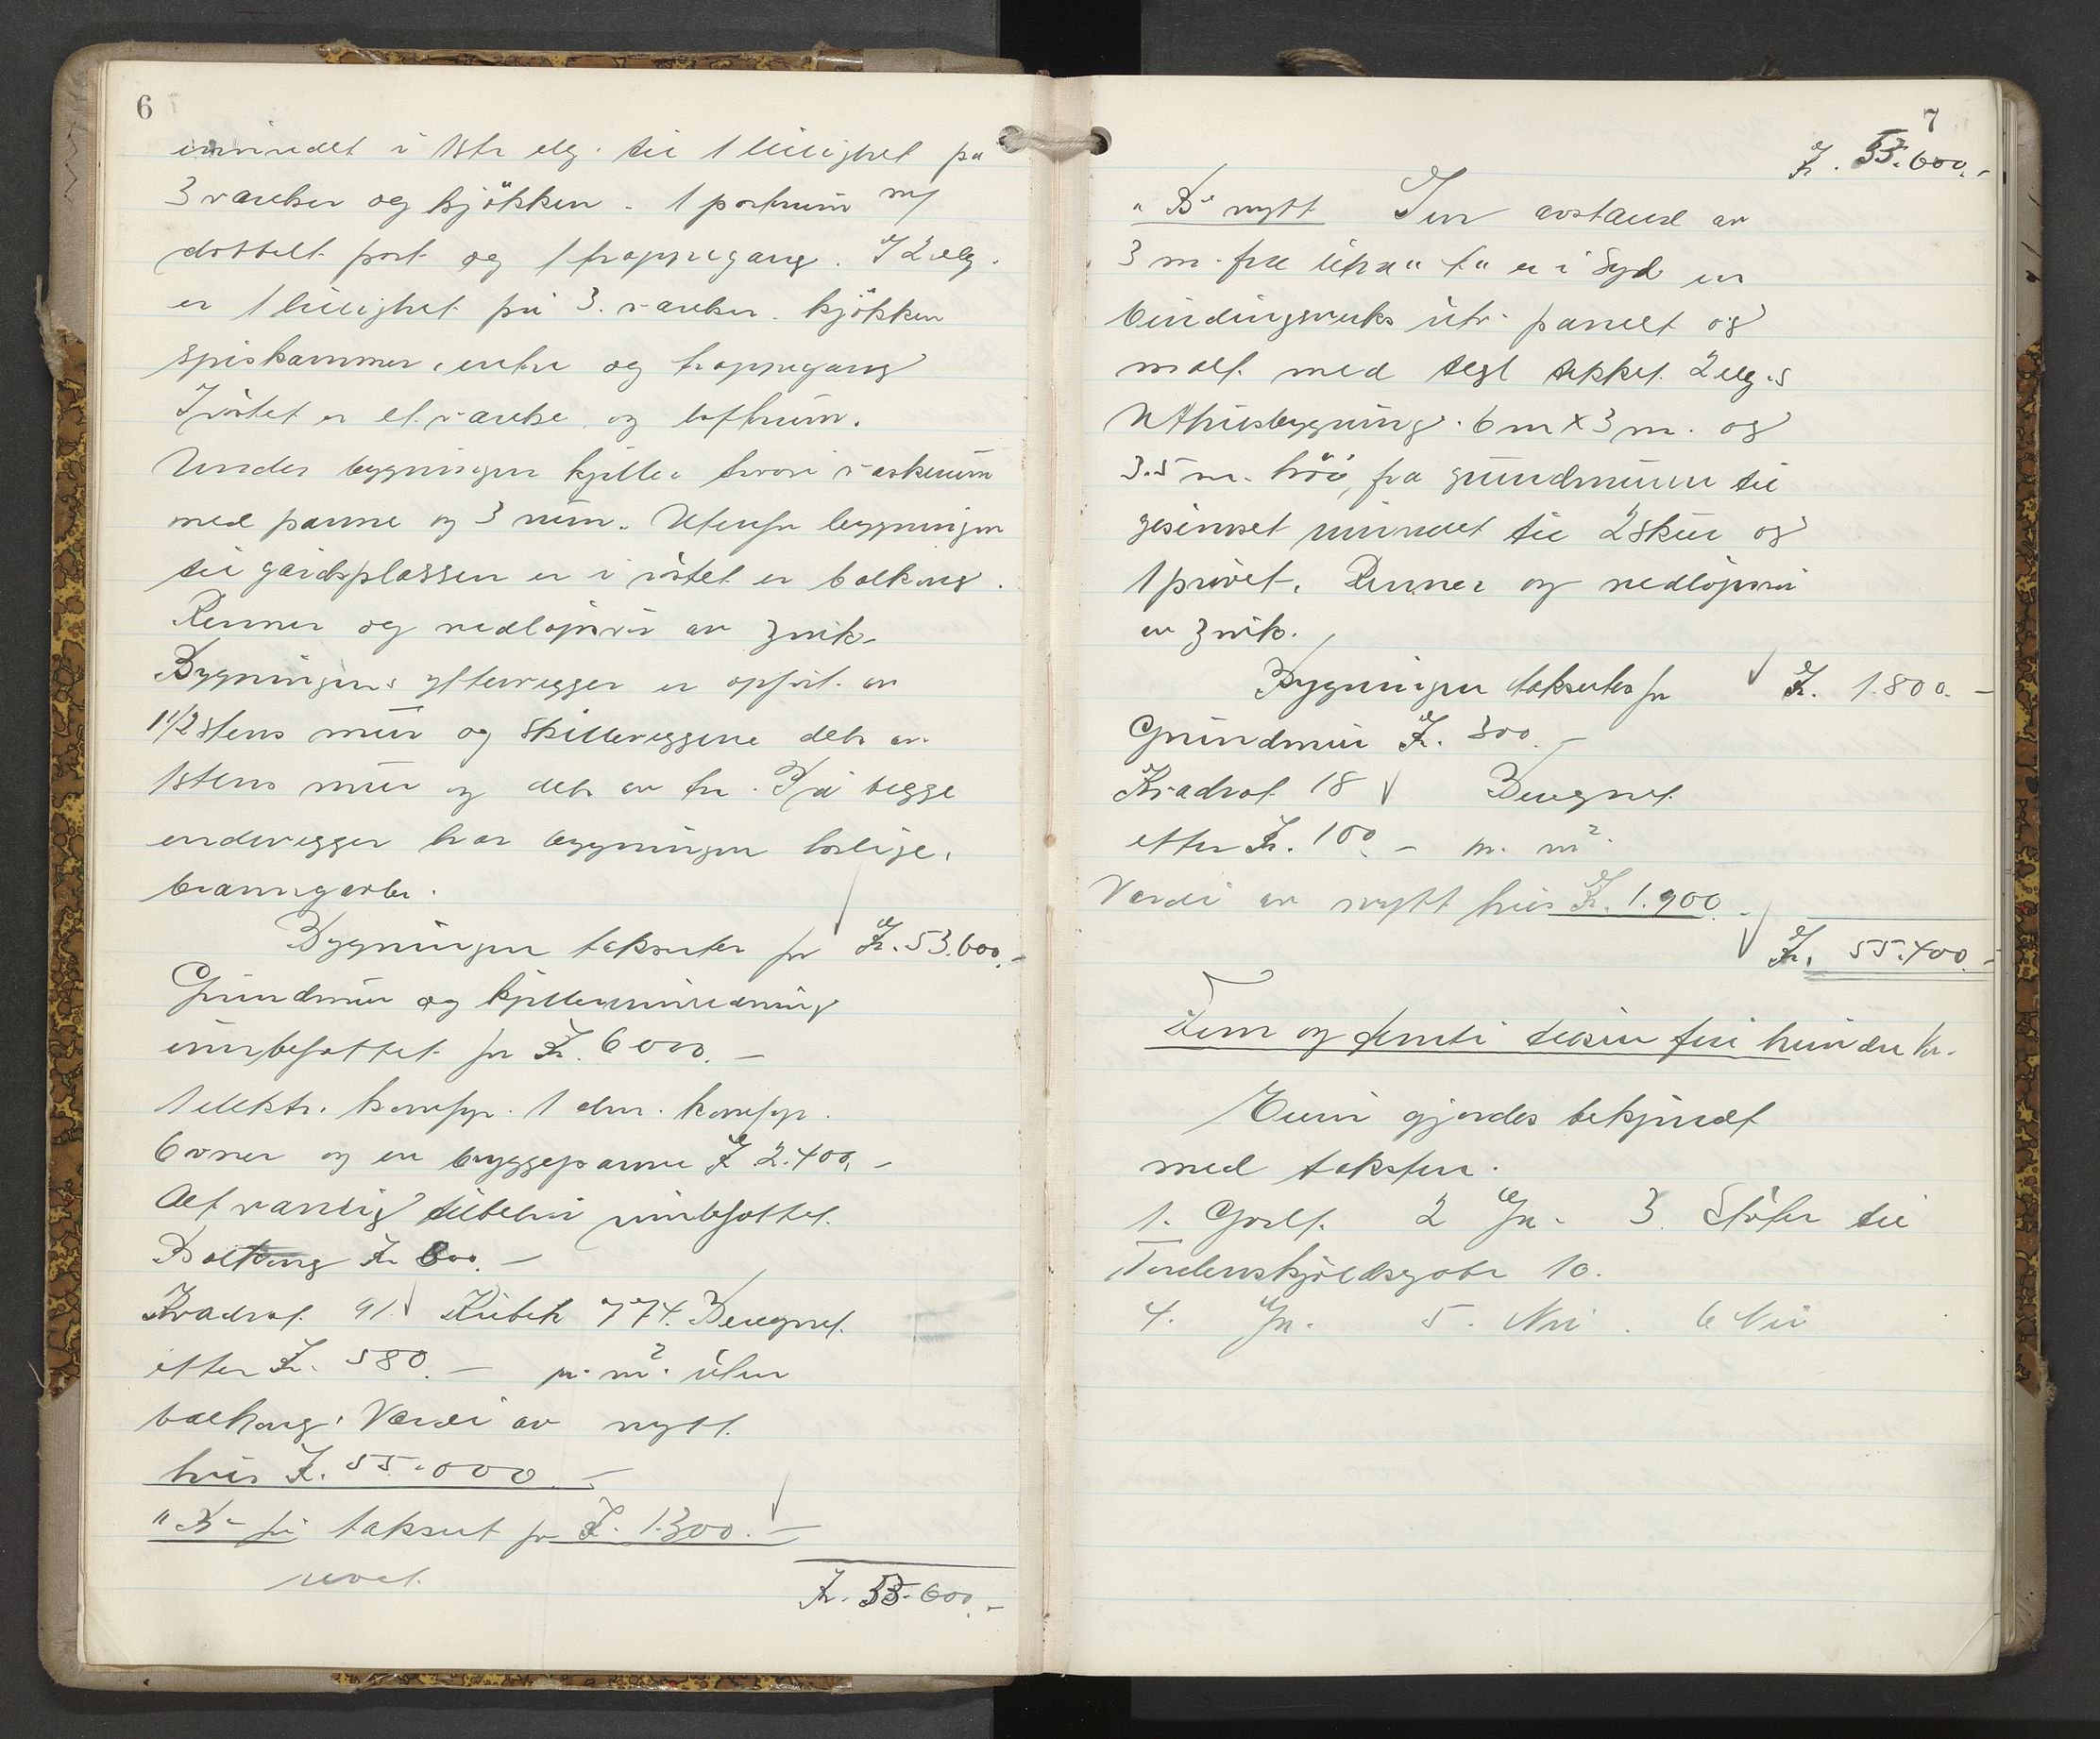 6
innredet i 1ste etg. til 1 leilighet på
3 værelser og kjökken. 1 portrum m/
dobbelt port og 1 trappegang. I 2 etg.
er 1 leilighet på 3. værelser. kjökken
spiskammer, entre og trappegang
I röstet er et værelse og loftrum.
Under bygningen kjeller hvori vaskerum
med panne og 3 rum. Utenfor bygningen
til gårdsplassen er i röstet en balkong.
Renner og nedlöpsrör av zink.
Bygningens yttervegger er opfört av
1 1/2 stens mur og skilleveggene dels av
1 stens mur og dels av tre. På begge
endevegger har bygningen lovlige
branngavler.
Bygningen takseres for Kr. 53.600.-
Grundmur og kjellerinnredning
innbefattet for Kr. 6000.-
1 elektr. komfyr. 1 alm. komfyr.
6 ovner og en bryggepanne Kr 2.400.-
Alt vanlig tilbehör innbefattet.
Balkong Kr 600.-
Kvadrat. 91. Kubik 774. Beregnet.
etter Kr. 580.- pr. m². uten
balkong. Verdi av nytt
hus Kr. 55.000.-
"B" før taksert for Kr. 1.300.-
revet.
Kr. 53.600.-
7
Kr. 53.600.-
"B" nytt I en avstand av
3 m. fra litra "A" er i Syd en
bindingsverks utv. panelt og
malt med tegl tekket 2 etg.s
Uthusbygning. 6 m x 3 m. og
3.5 m. höi, fra grundmuren til
gesimset innredet til 2 skur og
1 privet. Renner og nedlöpsrör
av zink.
Bygningen takseres for Kr. 1.800.-
Grundmur Kr. 300.-
Kvadrat 18 Beregnet
etter Kr. 100.- pr. m²
Verdi av nytt hus Kr. 1.900.-
Kr. 55.400.-
Fem og femti tusen fire hundre kr.
Eieren gjordes bekjendt
med taksten.
1. Godt. 2 Ja. 3. Stöter til
Tordenskjoldsgate 10.
4. Ja. 5. Nei. 6 Nei